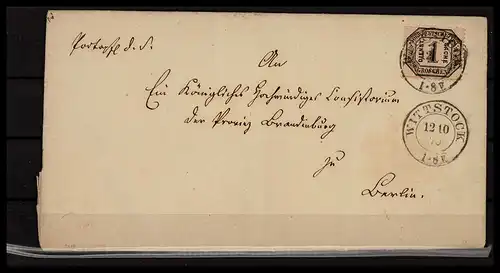 Portopfl. d. S.
1
GROSCHEN
1-8 F
An
Ein Königliches Hochwürdiges Consistorium
der Provinz Brandenburg
zu
Berlin.
WITTSTOCK
12 10
1-8 F